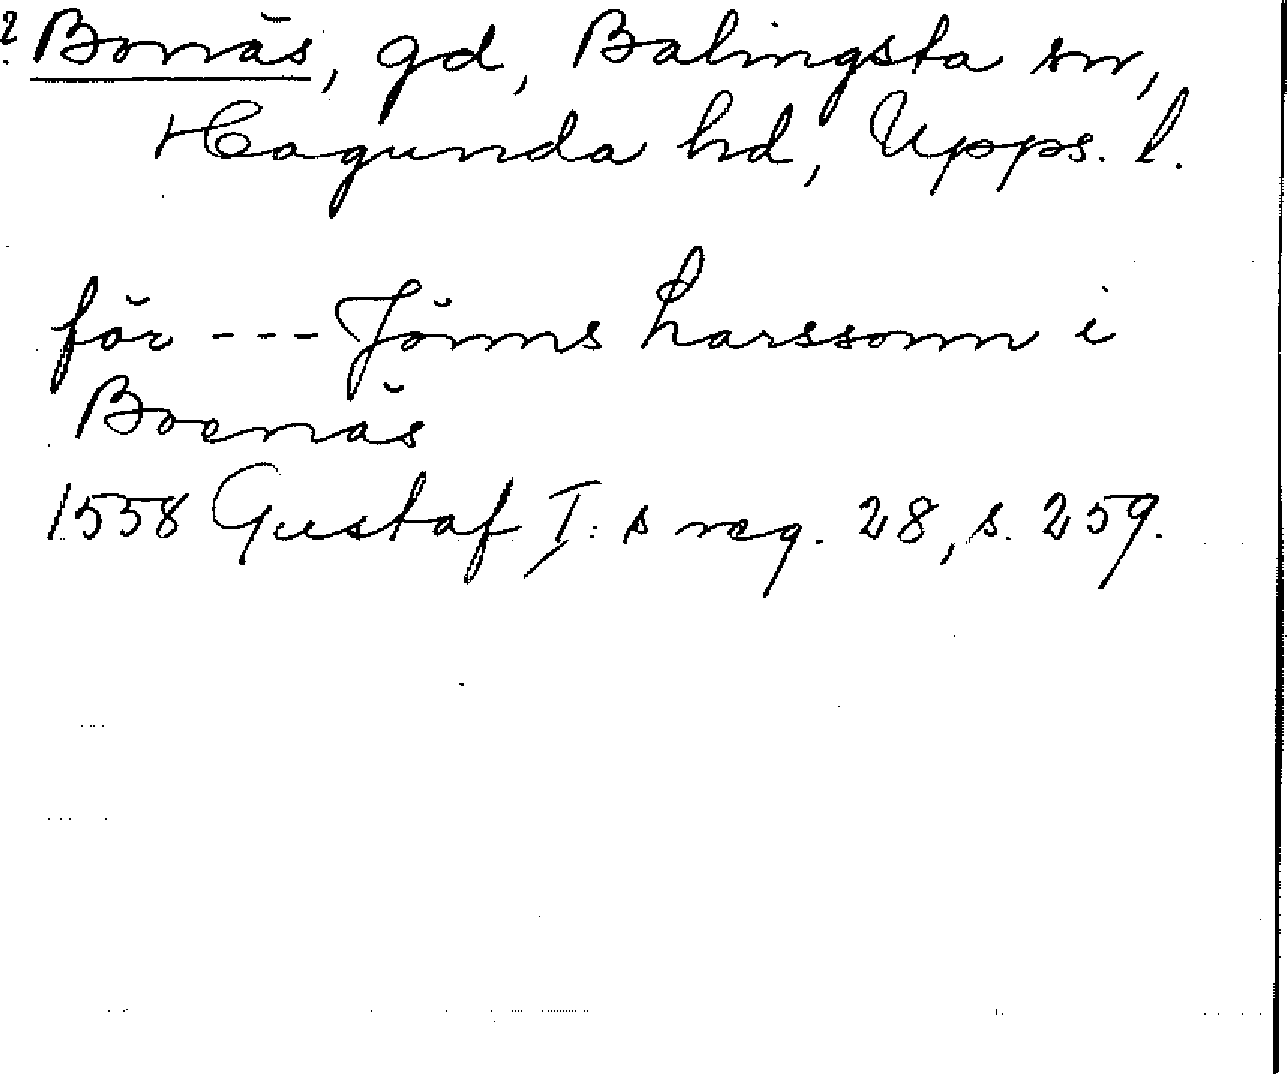 ? Bonäs, gd, Balingsta sn,
Hagunda hd, Upps. l.
för --- Jönns Larssonn i
Boenäs
1558 Gustaf I:s reg. 28, s. 259.